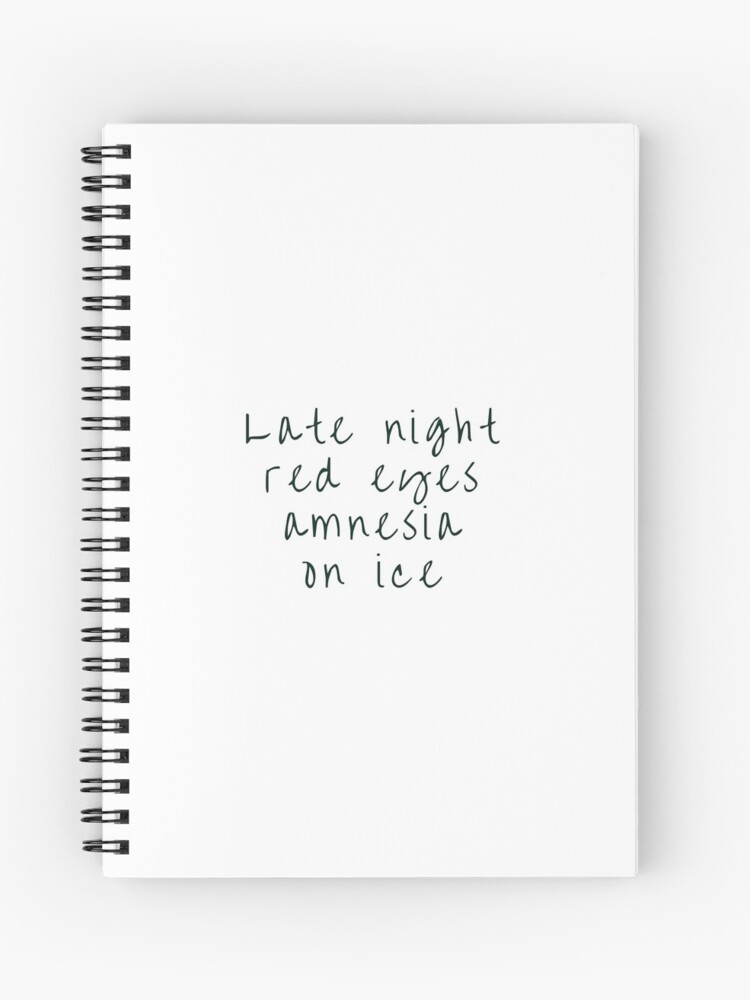 Late night
red eyes
amnesia
on ice